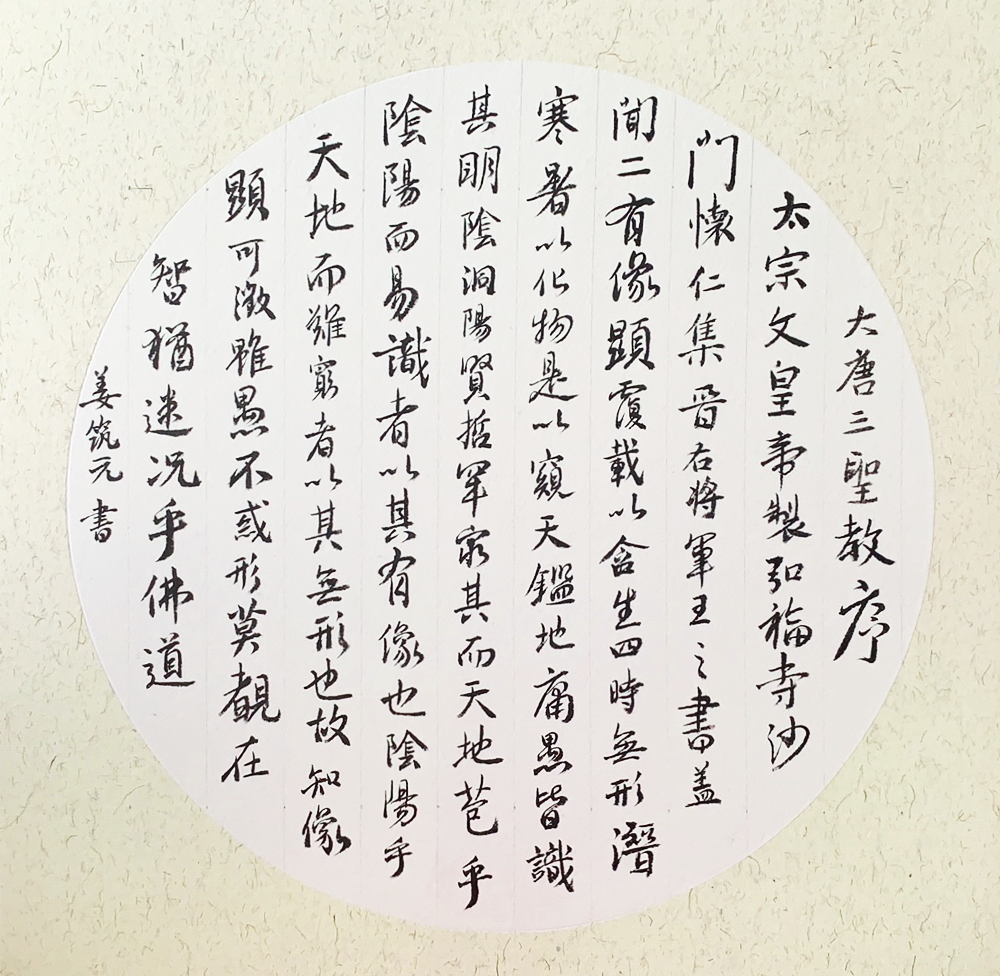 大唐三聖教序
太宗文皇帝製弘福寺沙
門懷仁集晉右將軍王之書盖
聞二有像顯覆載以含生四時無形潛
寒暑以化物是以窺天鑑地庸愚皆識
其明陰洞陽賢哲罕窮其而天地苞乎
陰陽而易識者以其有像也陰陽乎
天地而難窮者以其無形也故知像
顯可徵雖愚不惑形莫覩在
智猶迷况乎佛道
姜筑元書